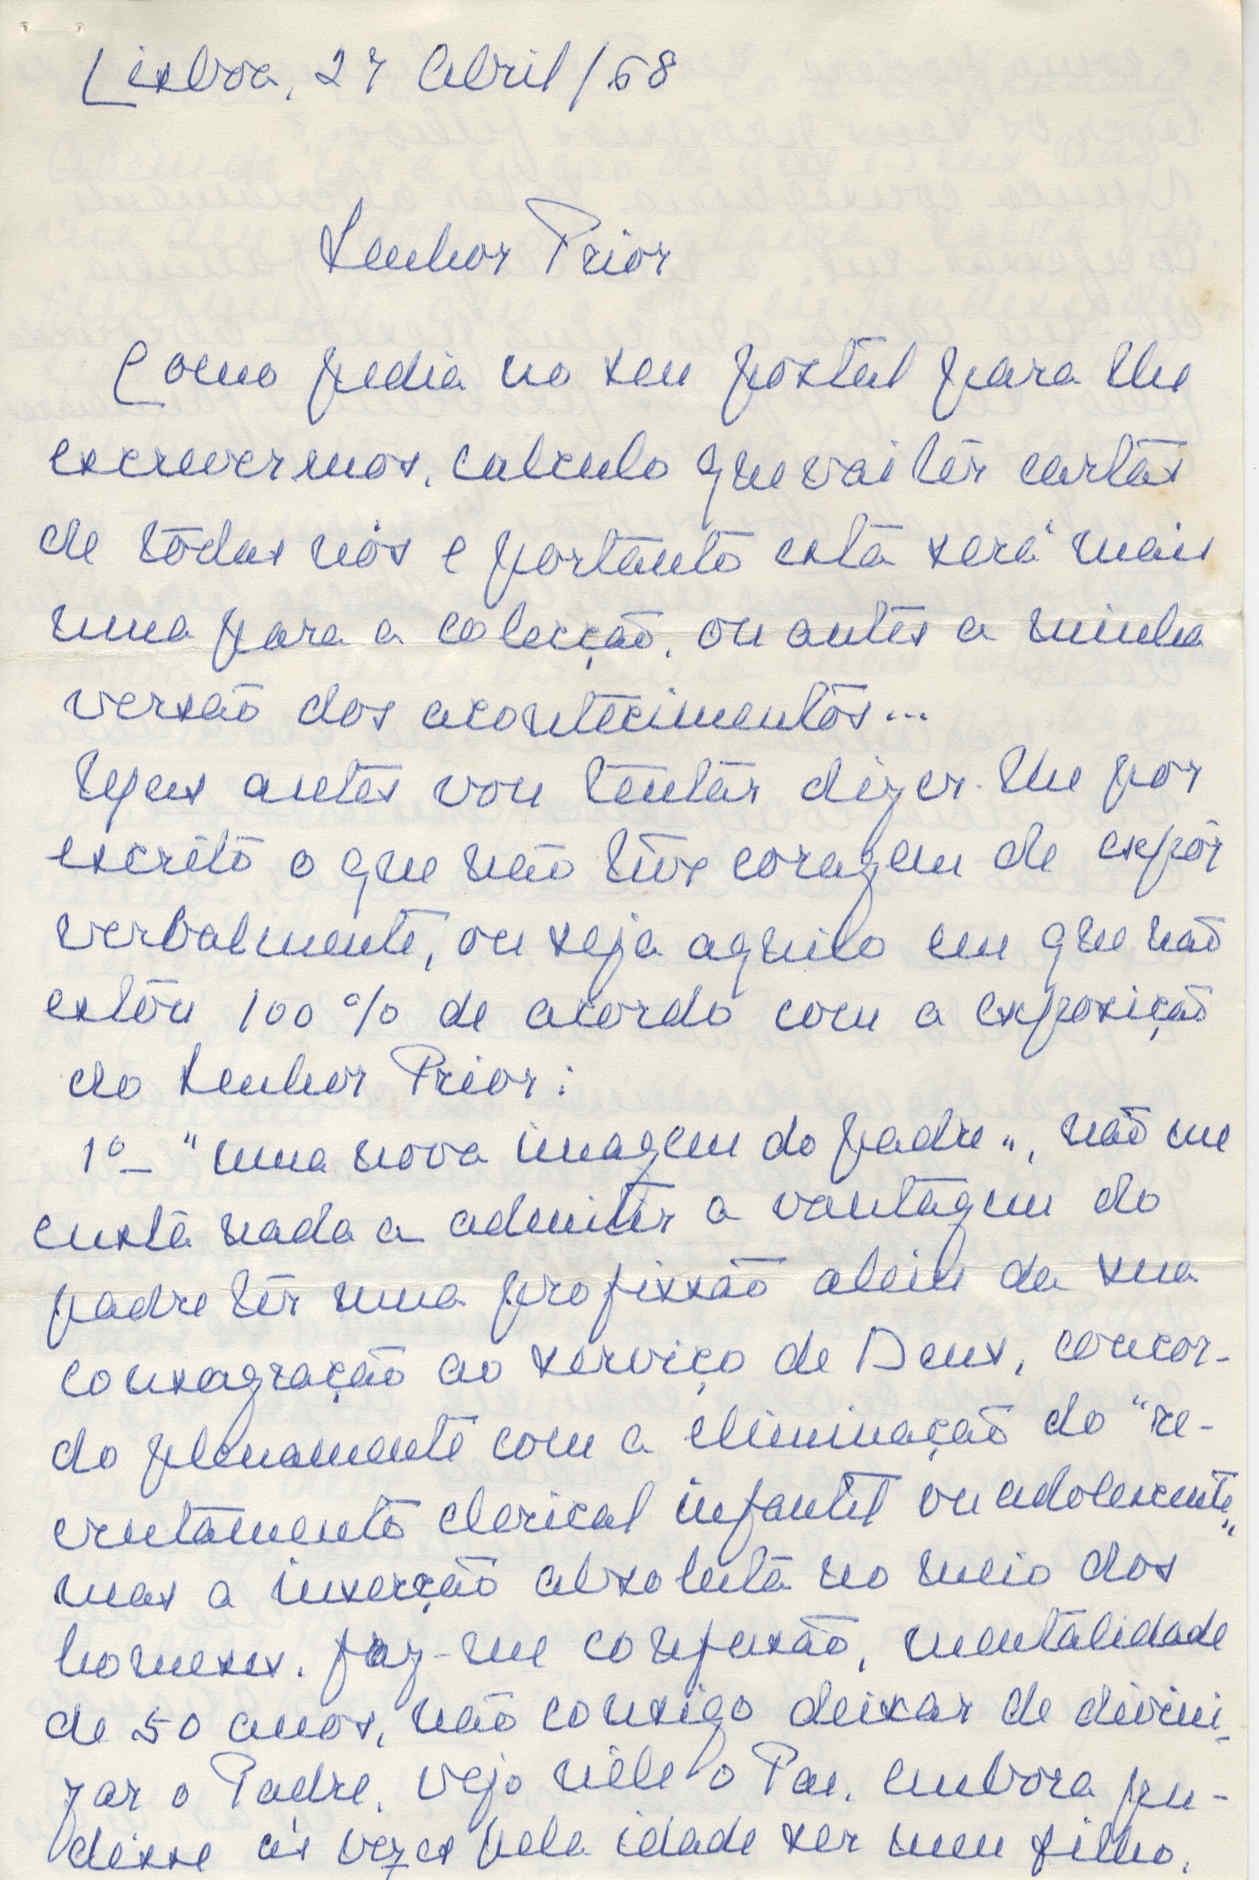 Lisboa, 27 Abril/68
Senhor Prior
Como pedia no seu postal para lhe
escrevermos, calculo que vai têr cartas
de tôdas nós e portanto esta será mais
uma para a colecção, ou antes a minha
versão dos acontecimentos...
Mas antes vou tentar dizer-lhe por
escrito o que não tive coragem de expôr
verbalmente, ou seja aquilo em que não
estou 100% de acordo com a exposição
do Senhor Prior:
1º- "uma nova imagem do padre", não me
custa nada a admitir a vantagem do
padre têr uma profissão além da sua
consagração ao serviço de Deus, concor-
do plenamente com a eliminação do "re-
crutamento clerical infantil ou adolescente"
mas a inserção absoluta no meio dos
homens, faz-me confusão, mentalidade
de 50 anos, não consigo deixar de divini-
zar o Padre, vejo nêle o Pai, embora pu-
desse às vezes pela idade ser meu filho,